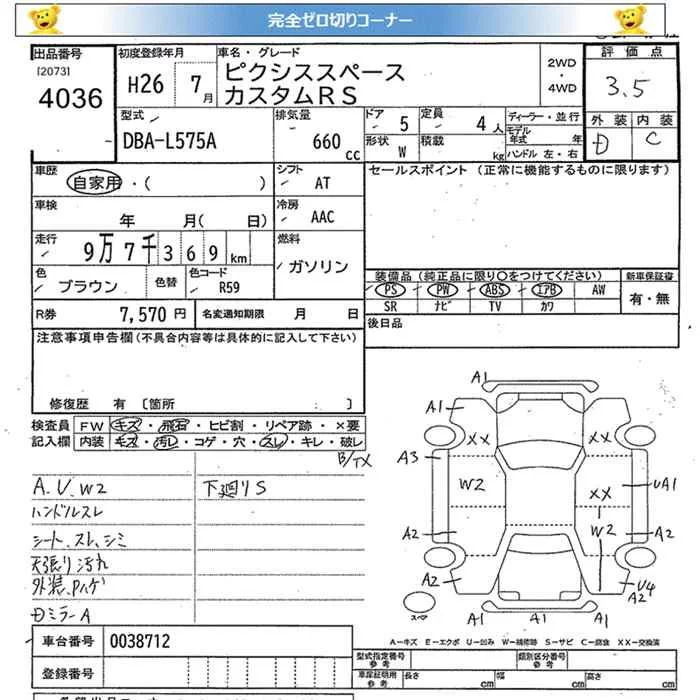 完全ゼロ切りコーナー
出品番号
[2073]
4036
初度登録年月
H26 7月
車名・グレード
ピクシススペース
カスタムRS
2WD
・
4WD
評価点
3.5
外装 内装
D C
型式
DBA-L575A
排気量
660 cc
ドア 5
定員 4人
形状 W
積載 kg
ディーラー・並行
モデル年式 年
ハンドル 左・右
車歴
自家用・( )
シフト AT
セールスポイント (正常に機能するものに限ります)
車検
年 月( 日)
冷房 AAC
走行
9万7千369km
燃料
ガソリン
色
ブラウン
色替
色コード
R59
装備品 (純正品に限り○をつけてください)
新車保証書
PS PW ABS エアB AW
有・無
SR ナビ TV カワ
R券 7,570円
名変通知期限 月 日
後日品
注意事項申告欄(不具合内容等は具体的に記入して下さい)
修復歴 有 〔箇所 〕
検査員
記入欄
FW キズ・飛石・ヒビ割・リペア跡・×要
内装 キズ・汚レ・コゲ・穴・スレ・キレ・破レ
A.U.W2
下廻りS
ハンドルスレ
シート.スレ.シミ
天張り汚れ
外装.Pハゲ
DミラーA
A1
A1
XX XX
A3
W2
XX
UA1
W2
A2 A2
A2
U4
A2
スペア
A1 A1 A1
A-キズ E-エクボ U-凹み W-補修跡 S-サビ C-腐食 XX-交換済
車台番号 0038712
登録番号
型式指定番号
参考
類別区分番号
参考
車庫証明用
参考
長さ cm 幅 cm 高さ cm